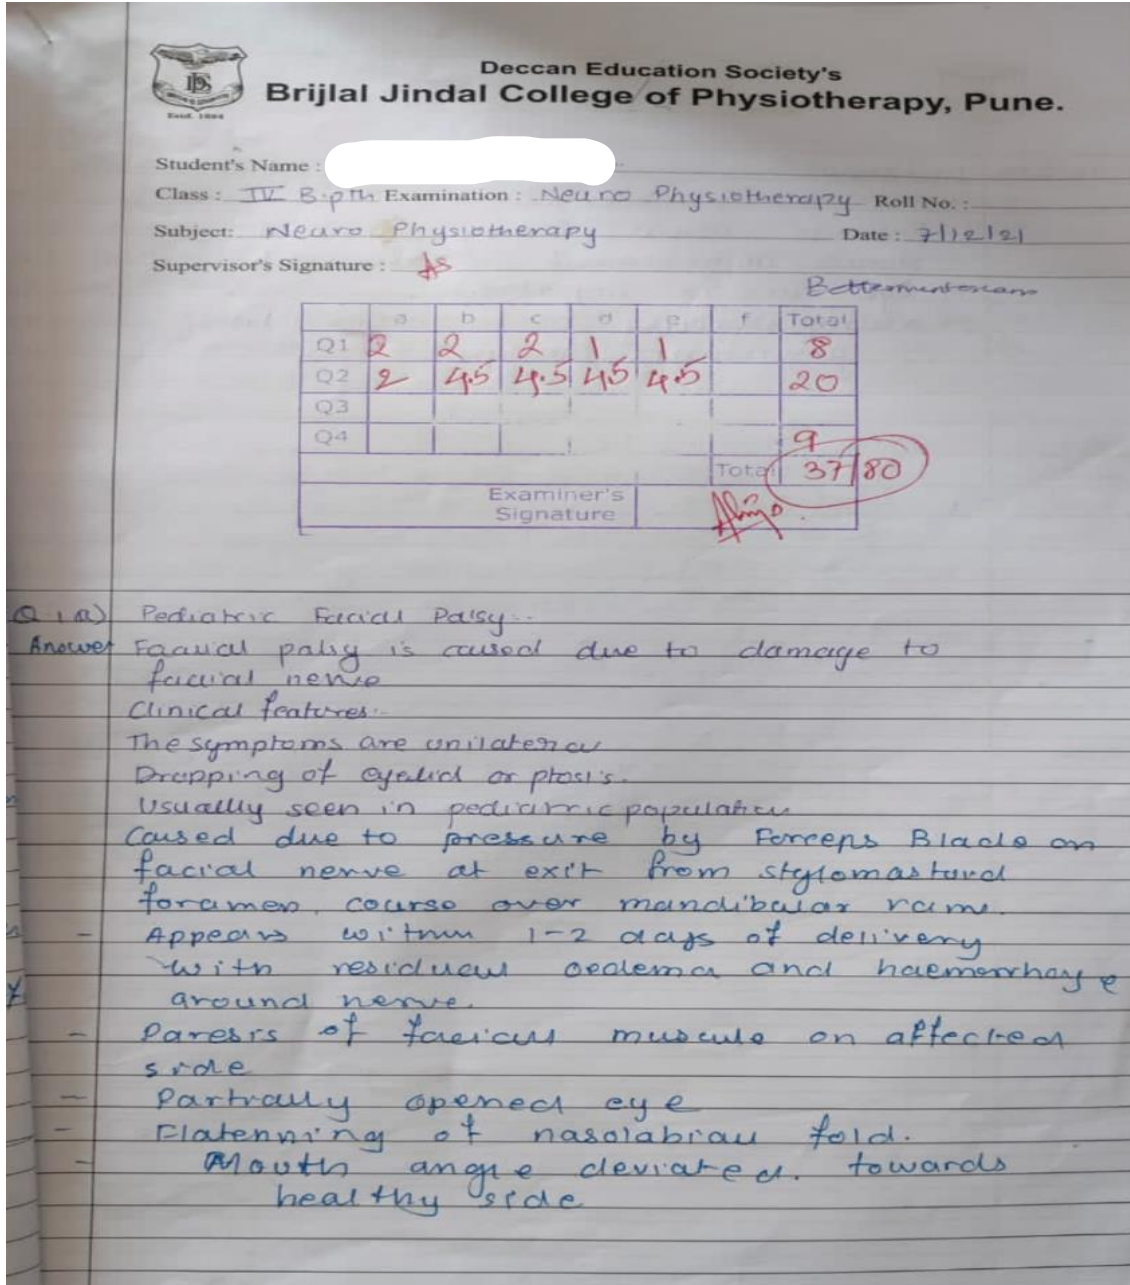 Deccan Education Society's
Brijlal Jindal College of Physiotherapy, Pune.
Estd. 1884
Student's Name :
Class : IV B.pth Examination : Neuro Physiotherapy Roll No. :
Subject: Neuro Physiotherapy Date : 7/12/21
Supervisor's Signature :
a b c d e f Total
Q1 2 2 2 1 1 8
Q2 2 4.5 4.5 4.5 4.5 20
Q3
Q4 9
Total 37/80
Examiner's
Signature
Q.1a) Pediatric Facial Palsy:-
Answer Facial palsy is caused due to damage to
facial nerve
Clinical features:-
The symptoms are unilateral
Dropping of eyelid or ptosis.
Usually seen in pediatric population
Caused due to pressure by Forceps Blade on
facial nerve at exit from stylomastoid
foramen, course over mandibular rami.
- Appears within 1-2 days of delivery
with residual oedema and haemorrhage
around nerve.
- Paresis of facial muscule on affected
side
- Partially opened eye
- Flatenning of nasolabial fold.
- Mouth angle deviated. towards
healthy side